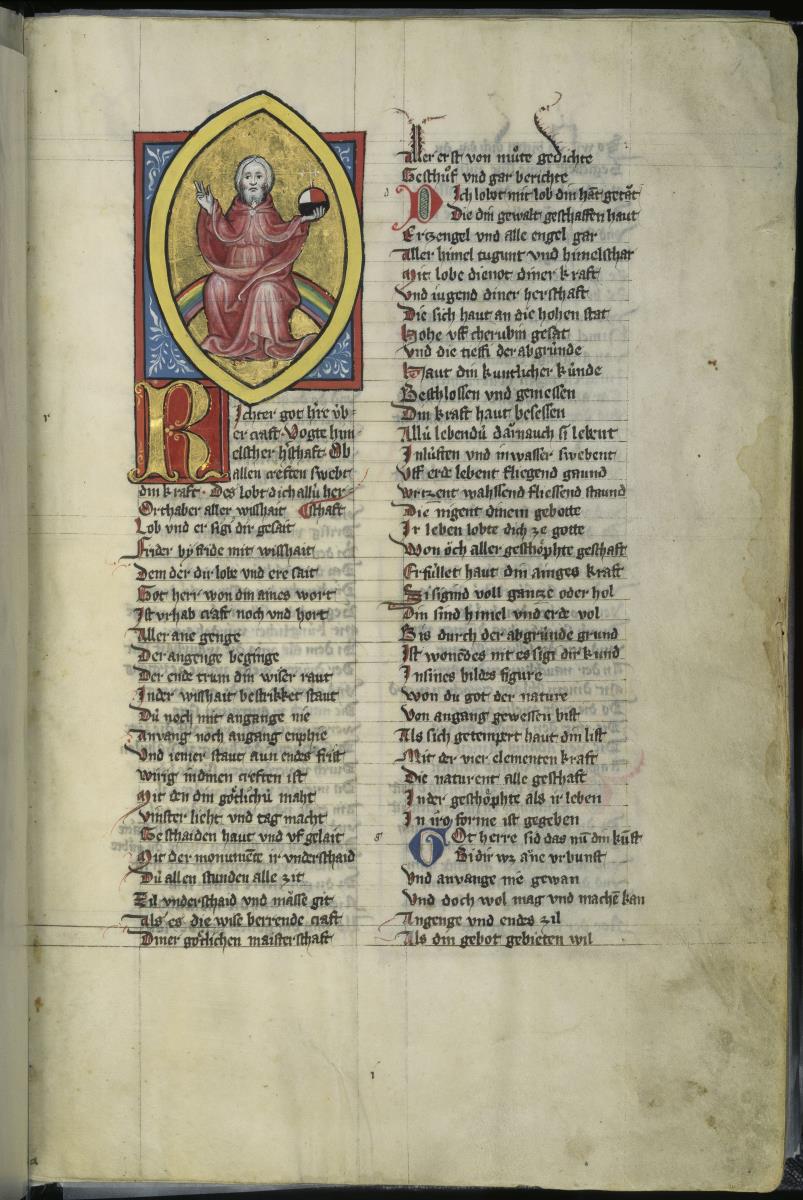 Richter got hr̄e v̊b
er craft · Vogte him
elscher h̄schaft · Ob
allen creften swebt
din kraft · Des lobt dich allu̇ her
Orthaber aller wisshait schaft
Lob vnd er sigi dir gesait
Frider by fride mit wisshait
Dem der dir lobe vnd ere sait
Got herr won din aines wort
Ist vrhab craft noch vnd hort
Aller ane genge
Der angenge beginge
Der ende trum din wiser raut
Inder wisshait bestrikket staut
Du̇ noch mit angange nie
Anvang noch angang enphie
Vnd iemer staut aun endes frist
wirig indinen creften ist
Mit den din go̊tlichu̇ maht
vinster lieht vnd tag macht
Geschaiden haut vnd vf gelait
Mit der monumēte ir vnderschaid
Du̇ allen stunden alle zit
Zil vnderschaid vnd masse git
Als es die wise berrende craft
Diner go̊tlichen maisterschaft
Aller erst von mu̇te gedichte
Geschu̇f vnd gar berichte
Dich lobot mit lob din hāt getǎt
Die din gewalt geschaffen haut
Ertzengel vnd alle engel gar
Aller himel tugunt vnd himelschar
Mit lobe dienot diner kraft
vnd iugend diner herschaft
Die sich haut an die hohen stat
Hohe vff cherubin gesat
vnd die tieffi der abgru̇nde
Haut din kuntlicher ku̇nde
Beschlossen vnd gemessen
Din kraft haut besessen
Allu̇ lebendu̇ darnauch si lebent
In lu̇ften vnd in wasser swebent
Vff erde lebent fliegend gaund
wrtzent wahssend fliessend staund
Die nigent dinem gebotte
Ir leben lobte dich ze gotte
Won o̊ch aller gescho̊phte geschaft
Erfu̇llet haut din ainges kraft
Si sigind voll gantze oder hol
Din sind himel vnd erde vol
Bis durch der abgru̇nde grund
Ist wonēdes nit es sigi dir kund
In sines bildes figure
won du got der nature
Von angang gewessen bist
Als sich getempert haut din list
Mit der vier elementen kraft
Die naturent alle geschaft
In der gescho̊phte als ir leben
In iro forme ist gegeben
Got herre sid das nu̇ din ku̇st
Bi dir wz ane vrbunst
Vnd anvange nie gewan
Vnd doch wol mag vnd machē kan
Angenge vnd endes zil
Als din gebot gebieten wil
1